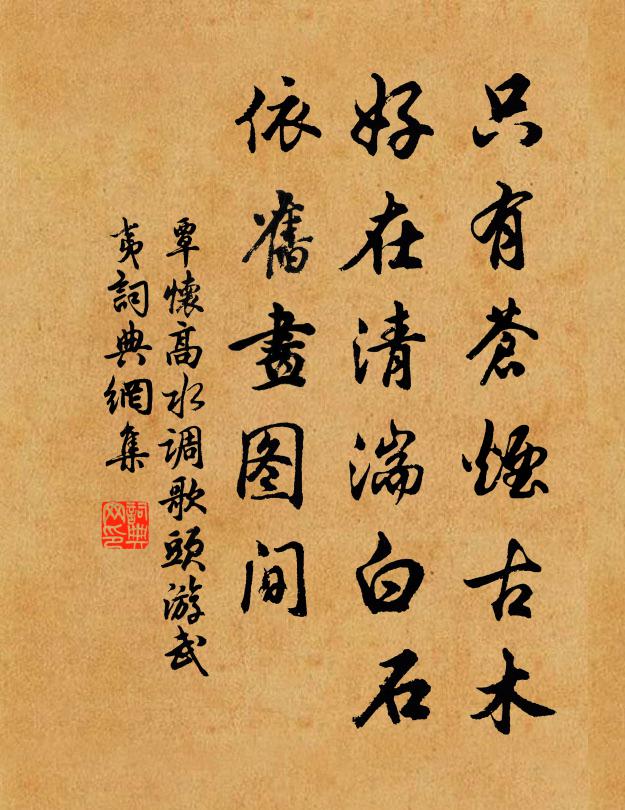 只有蒼煙古木
好在清湍白石
依舊畫图间
覃懷高水调歌頭游武
夷詞典網集
詞典网印